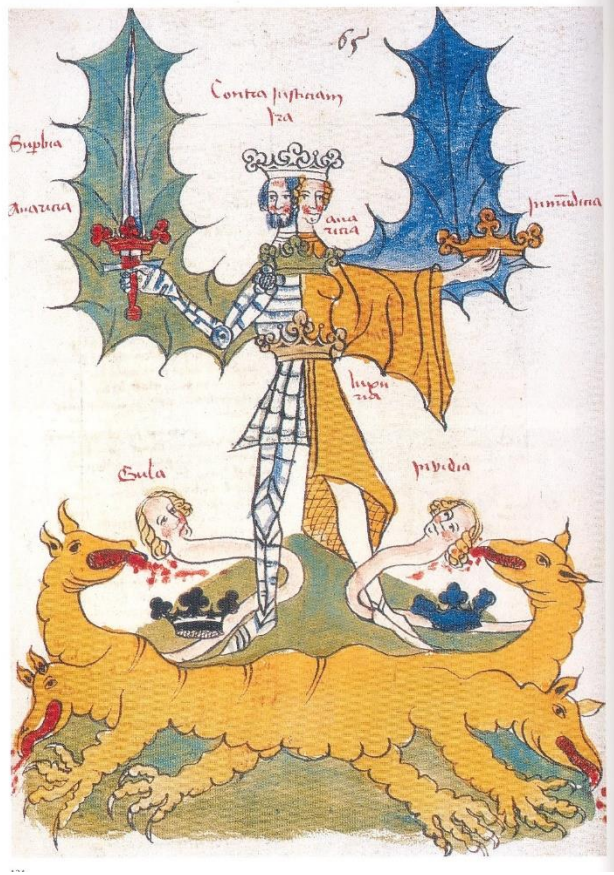 65
Contra Justiciam
Ira
Sup̄bia
Auaricia
aua
ricia
Inmūdicia
luxu
ria
Gula
Invidia